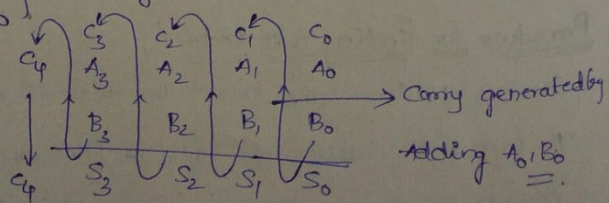 C4 C3 C2 C1 C0
A3 A2 A1 A0
B3 B2 B1 B0
C4 S3 S2 S1 S0
Carry generated by
Adding A0, B0